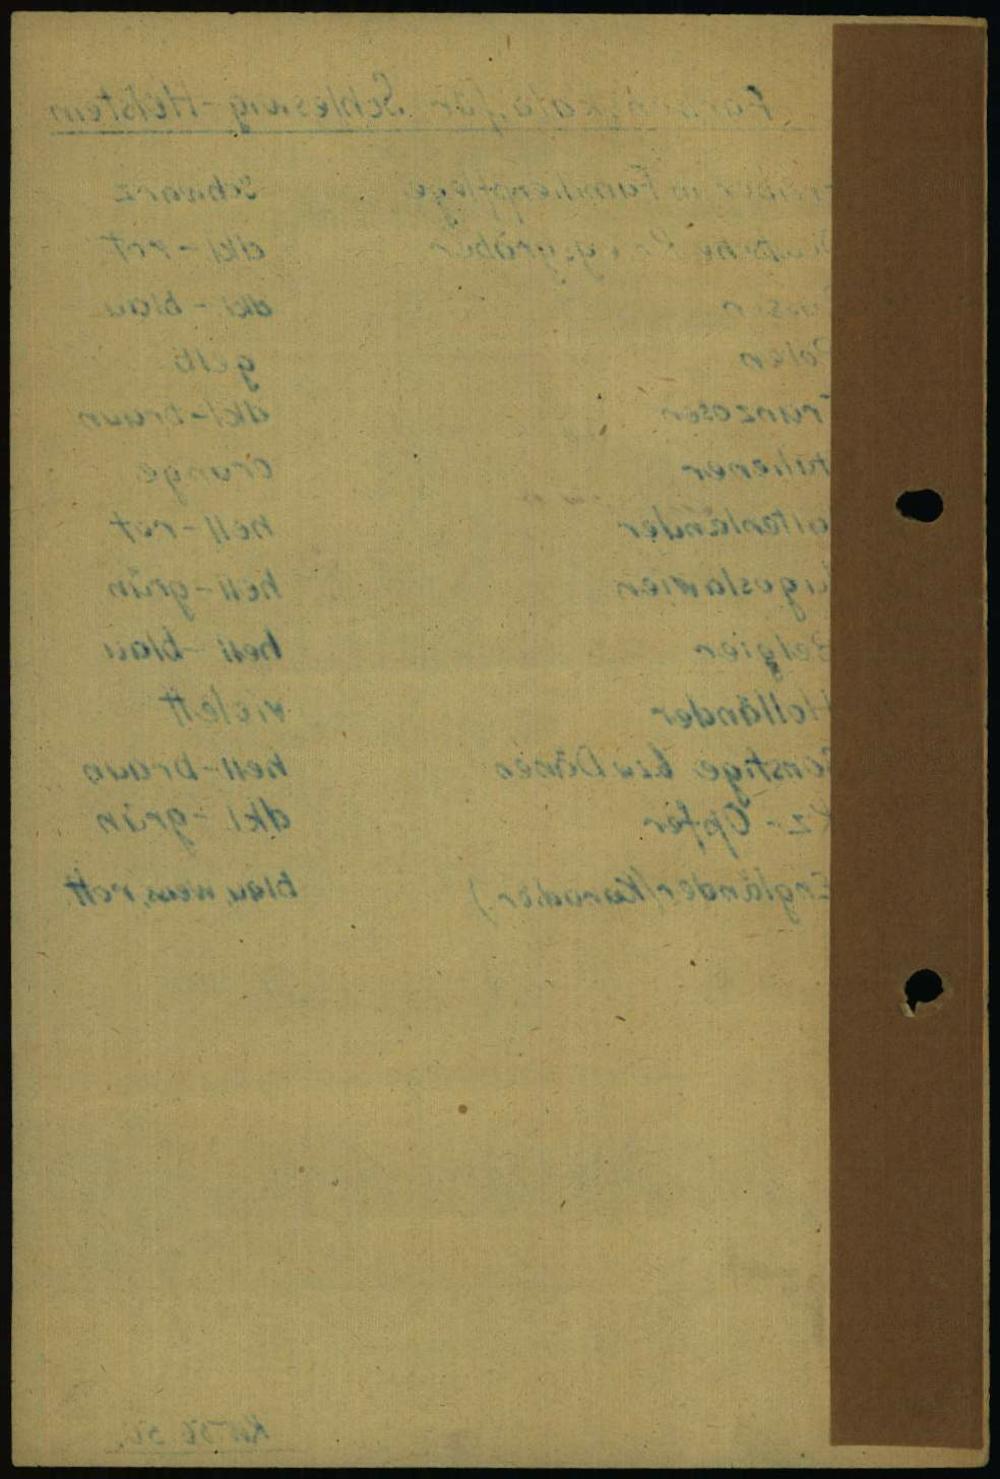 Farbenskala für Schleswig-Holstein
Gräber in Familienpflege schwarz
Deutsche Kriegsgräber dkl-rot
Russen dkl-blau
Polen gelb
Franzosen dkl-braun
Italiener orange
Baltenländer hell-rot
Jugoslawien hell-grün
Belgier hell-blau
Holländer violett
Sonstige hell-braun
Kz-Opfer dkl-grün
Engländer (Kanadier) blau, weiss, rott